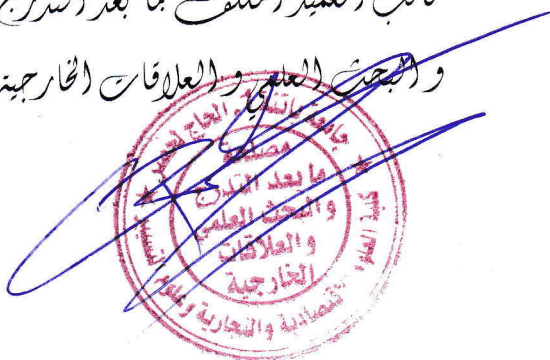 نائب العميد المكلف بما بعد التدرج
و البحث العلمي و العلاقات الخارجية
جامعة باتنة الحاج لخضر
مصلحة
ما بعد التدرج
والبحث العلمي
والعلاقات
الخارجية
كلية العلوم الاقتصادية والتجارية وعلوم التسيير